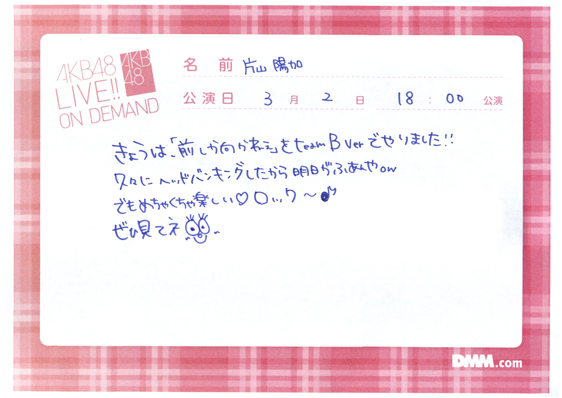 AKB48
LIVE!!
ON DEMAND
AKB
48
名前 片山陽加
公演日 3月2日 18:00公演
きょうは、「前しか向かねえ」をteamB verでやりました!!
久々にヘッドバンキングしたから明日がふあんやow
でもめちゃくちゃ楽しい♡ロック〜♪
ぜひ見てネ
DMM.com